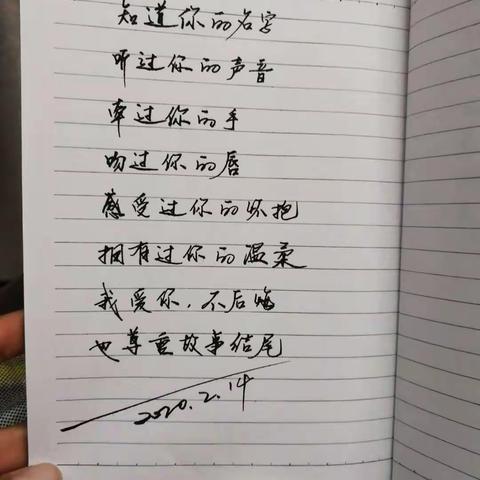 知道你的名字
听过你的声音
牵过你的手
吻过你的唇
感受过你的怀抱
拥有过你的温柔
我爱你，不后悔
也尊重故事结尾
2020.2.14